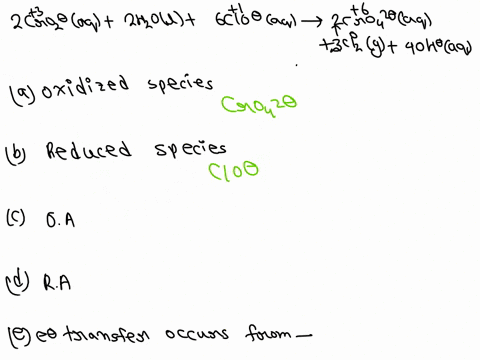 2CrO2⊖(aq) + 2H2O(l) + 6ClO⊖(aq) → 2CrO4 2⊖(aq)
+3 +1 +6
+3Cl2(g) + 4OH⊖(aq)
(a) oxidized species
CrO4 2⊖
(b) Reduced species
ClO⊖
(c) O.A
(d) R.A
(e) e⊖ transfer occurs from —